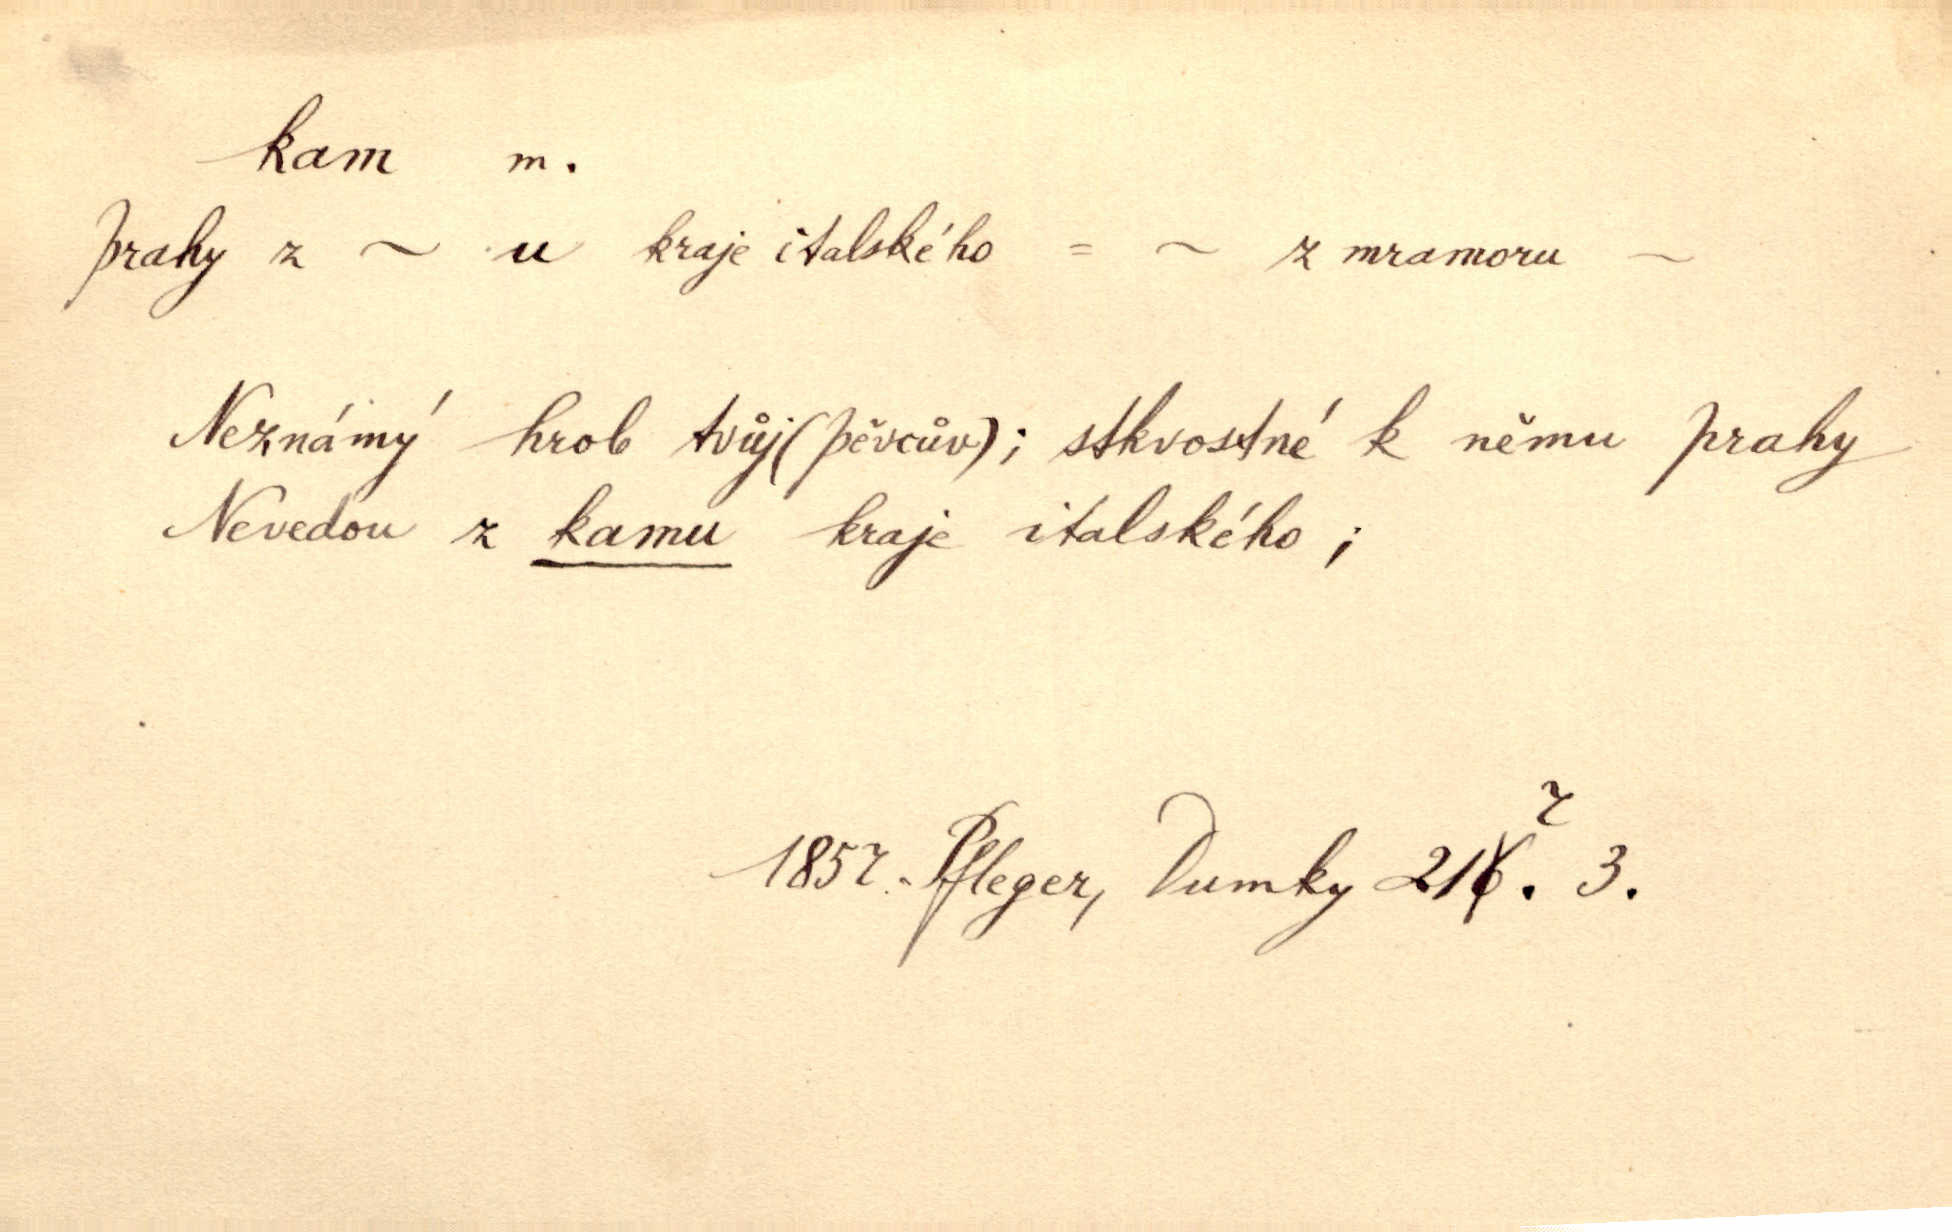 kam m.
prahy z ~ u kraje italského = ~ z mramoru ~
Neznámý hrob tvůj (pěvcův); stkvostné k němu prahy
Nevedou z kamu kraje italského;
7
1857. Pfleger, Dumky 216. 3.